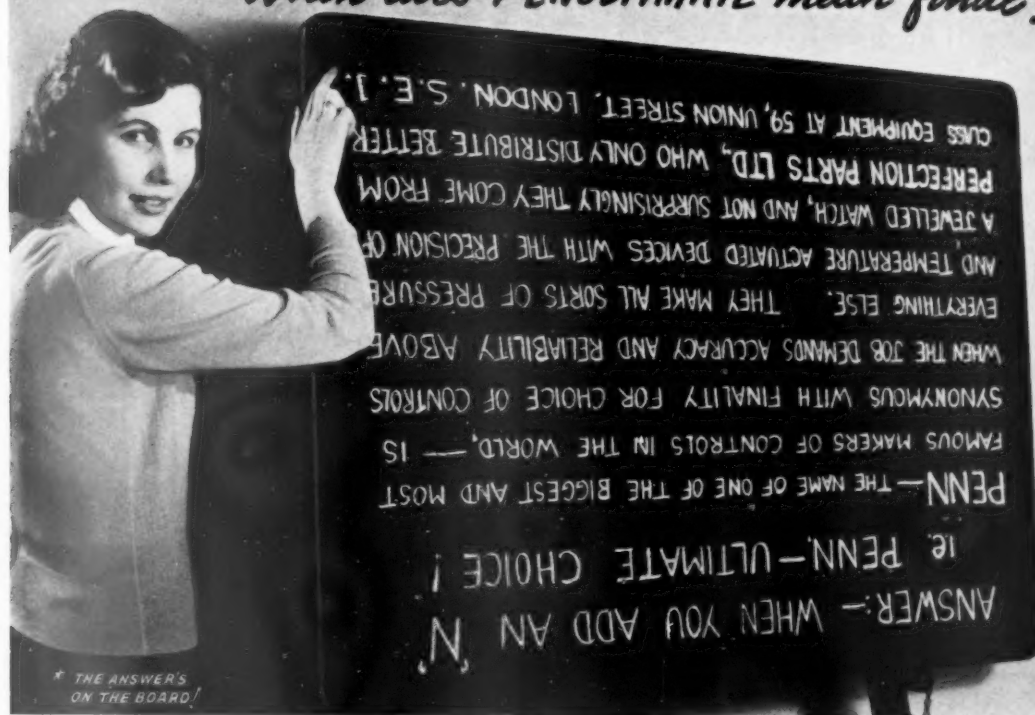 PENULTIMATE mean final
ANSWER:— WHEN YOU ADD AN 'N'
i.e. PENN.—ULTIMATE CHOICE!
PENN—THE NAME OF ONE OF THE BIGGEST AND MOST
FAMOUS MAKERS OF CONTROLS IN THE WORLD,— IS
SYNONYMOUS WITH FINALITY FOR CHOICE OF CONTROLS
WHEN THE JOB DEMANDS ACCURACY AND RELIABILITY ABOVE
EVERYTHING ELSE. THEY MAKE ALL SORTS OF PRESSURE
AND TEMPERATURE ACTUATED DEVICES WITH THE PRECISION OF
A JEWELLED WATCH, AND NOT SURPRISINGLY THEY COME FROM
PERFECTION PARTS LTD, WHO ONLY DISTRIBUTE BETTER
CLASS EQUIPMENT AT 59, UNION STREET. LONDON. S.E.1.
* THE ANSWER'S
ON THE BOARD!